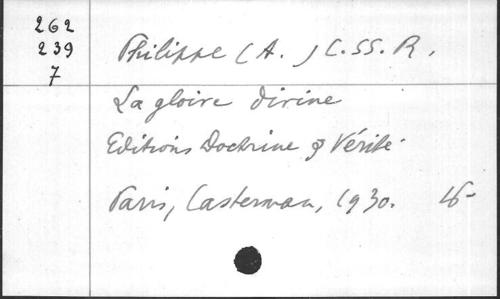 262
239
7
Philippe (A.) C.SS.R.
La gloire divine
Editions Doctrine & Vérité.
Paris, Casterman, 1930.